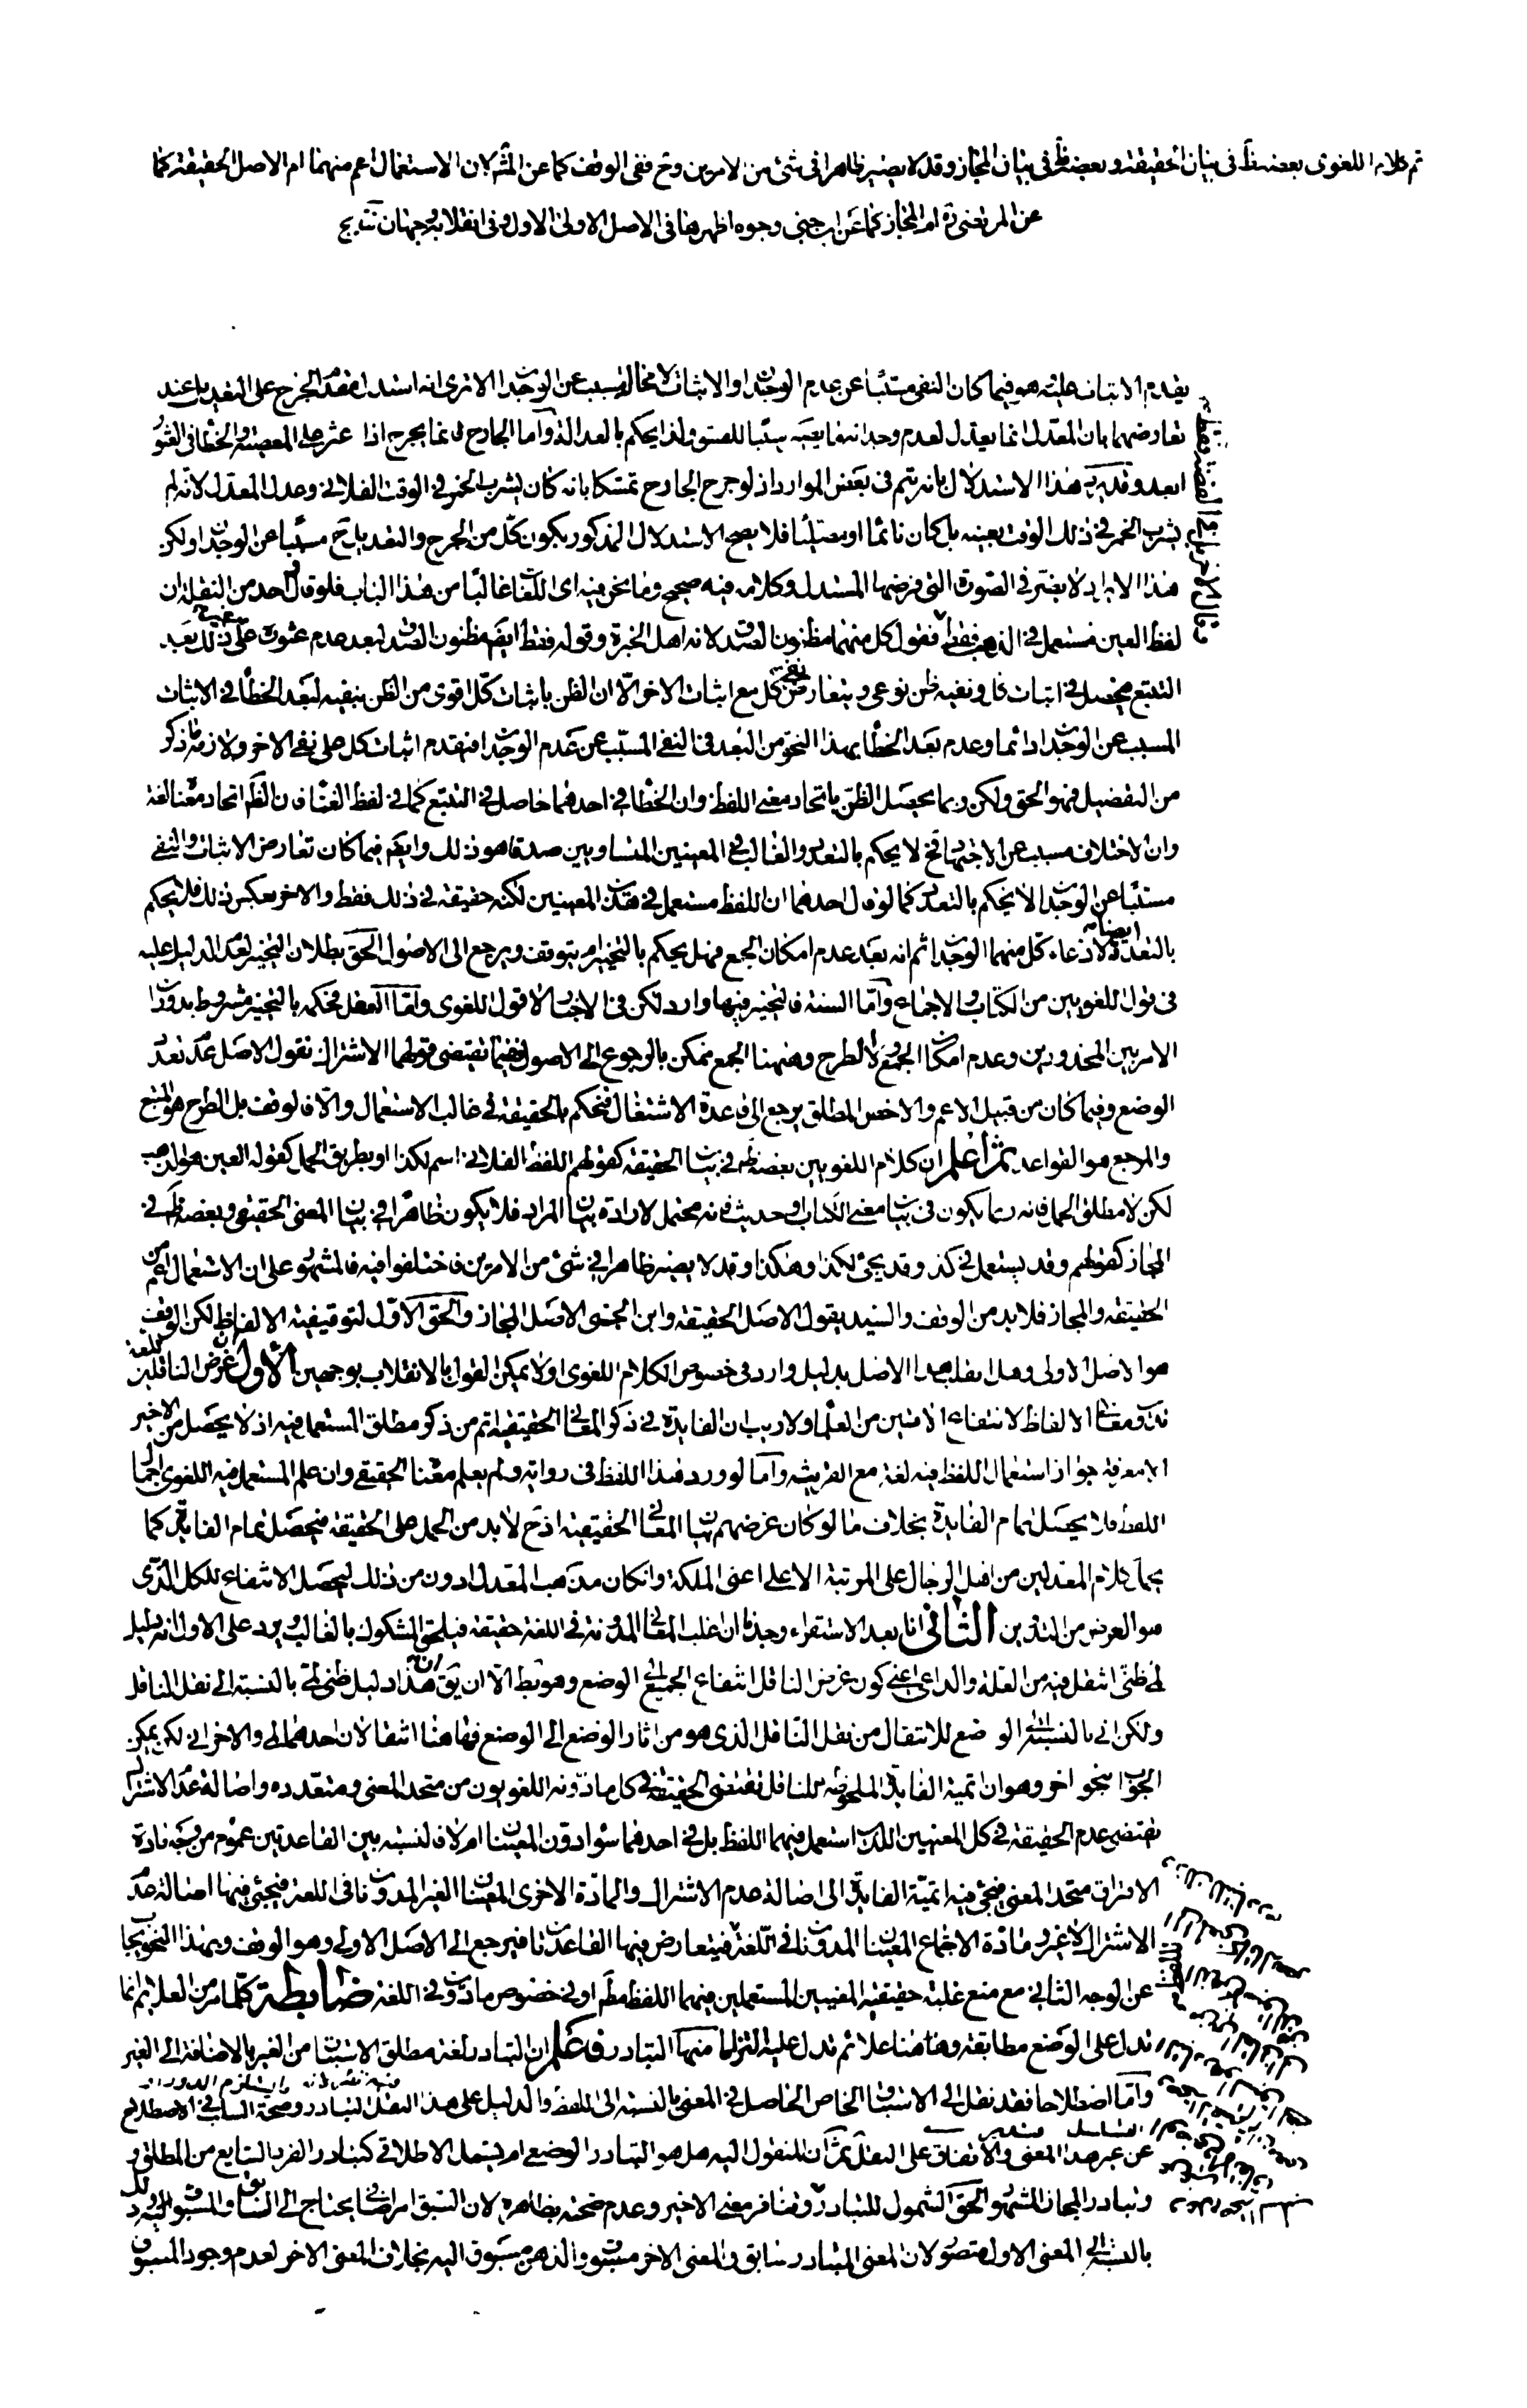 ثم كلام اللغوى بعضه ظ فى بيان الحقيقة و بعضه ظ فى بيان المجاز و قد لا يصير ظاهرا فى شئ من الامرين و ح ففى الوقف كما عن المش لان الاستعمال اعم منهما ام الاصل الحقيقة كما
عن المرتضى ره ام المجاز كما عن ابن جنى وجوه اظهرها فى الاصل الاولى الاول و فى انقلابه وجهان
يقدم الاثبات عليه هو فيما كان النفى مسببا عن عدم الوجدان و الاثبات لا محالة مسبب عن الوجدان الا ترى انه استدل لتقدم الجرح على التعديل عند
تعارضهما بان المعدل انما يعدل لعدم وجدانه ما يعيبه سببا للفسق ولذا يحكم بالعدالة و اما الجارح فانما يجرح اذا عثر على المعصية و الخطأ فى العثور
ابعد و فيه هذا الاستدلال بانه يتم فى بعض الموارد اذ لو جرح الجارح تمسكا بانه كان يشرب الخمر فى الوقت الفلانى و عدل المعدل لانه لم
يشرب الخمر فى ذلك الوقت بعينه بل كان نائما او مصليا فلا يصح الاستدلال المذكور بكون كل من الجرح و التعديل ح مسببا عن الوجدان و لكن
هذا الايراد لا يضر فى الصورة التى فرضها المستدل و كلامه فيه صحيح و ما نحن فيه اى اللغات غالبا من هذا الباب فلو قال احد من النقلة ان
لفظ العين مستعمل فى الذهب فقط فنقول كل منهما مظنون الصدق لانه اهل الخبرة و قوله فقط ايضا مظنون الصدق لبعد عدم عثوره على ذلك بعد
التتبع فيحصل فى اثبات كل و نفيه ظن نوعى و يتعارض نفى كل مع اثبات الاخر الا ان الظن باثبات كل اقوى من الظن بنفيه لبعد الخطأ فى الاثبات
المسبب عن الوجدان دائما و عدم بعد الخطأ بهذا النحو من البعد فى النفى المسبب عن عدم الوجدان فيقدم اثبات كل على نفى الاخر و لازمه ما ذكر
من التفصيل فهو الحق و لكن ربما يحصل الظن باتحاد معنى اللفظ و ان الخطأ فى احدهما حاصل فى التتبع كما فى لفظ الغناء فان الظ اتحاد معناه لغة
و ان الاختلاف مسبب عن الاجتهاد فح لا يحكم بالتعدد و الغالب فى المعنيين المتساويين صدقا هو ذلك و ايضا فيما كان تعارض الاثبات و النفى
مسببا عن الوجدان لا يحكم بالتعدد كما لو قال احدهما ان اللفظ مستعمل فى هذين المعنيين لكنه حقيقة فى ذلك فقط و الاخر بعكس ذلك فلا يحكم
بالتعدد لادعاء كل منهما الوجدان ثم انه بعد عدم امكان الجمع فهل يحكم بالتخيير ام يتوقف و يرجع الى الاصول الحق بطلان التخيير لعدم الدليل عليه
فى قول اللغويين من الكتاب و الاجماع و اما السنة فالتخيير فيها وارد لكن فى الاخبار لا قول اللغوى و اما العقل فحكمه بالتخيير مشروط بدوران
الامر بين المحذورين و عدم امكان الجمع و لا الطرح و ههنا الجمع ممكن بالرجوع الى الاصول ففيما يقتضى قولهما الاشتراك نقول الاصل عدم تعدد
الوضع و فيما كان من قبيل الاعم و الاخص المطلق يرجع الى قاعدة الاشتغال فيحكم بالحقيقة فى غالب الاستعمال و الا فالوقف بل الطرح هو المتبع
و المرجع هو القواعد ثم اعلم ان كلام اللغويين بعضه ظ فى بيان الحقيقة كقولهم اللفظ الفلانى اسم لكذا او بطريق الحمل كقوله العين هو الذهب
لكن لا مطلق الحمل فانه ربما يكون فى بيان معنى الكتاب او حديث فانه محتمل لارادة بيان المراد فلا يكون ظاهرا فى بيان المعنى الحقيقى و بعضه ظ فى
المجاز كقولهم و قد يستعمل فى كذا و قد يجئ لكذا و هكذا و قد لا يصير ظاهرا فى شئ من الامرين فاختلفوا فيه فالمشهور على ان الاستعمال اعم من
الحقيقة و المجاز فلا بد من الوقف و السيد يقول الاصل الحقيقة و ابن الجنى الاصل المجاز و الحق الاول لتوقيفية الالفاظ لكن الوقف
هو الاصل الاولى و هل انقلب هذا الاصل بدليل وارد فى خصوص الكلام اللغوى او لا يمكن القول بالانقلاب بوجهين الاول ان غرض الناقلين للغة
تدوين معانى الالفاظ لانتفاع الاتين من العلماء و لا ريب ان الفايدة فى ذكر المعانى الحقيقية اتم من ذكر مطلق المستعمل فيه اذ لا يحصل من الاخير
الا معرفة جواز استعمال اللفظ فيه لغة مع القرينة و اما لو ورد هذا اللفظ فى رواية و لم يعلم معناه الحقيقى و ان علم المستعمل فيه اللغوى اجمالا
اللفظ فلا يحصل تمام الفايدة بخلاف ما لو كان غرضهم بيان المعانى الحقيقية اذ ح لا بد من الحمل على الحقيقة فيحصل تمام الفايدة كما
يحمل كلام المعدلين من اهل الرجال على المرتبة الاعلى اعنى الملكة و ان كان مذهب المعدل ادون من ذلك ليحصل الانتفاع للكل الذى
هو الغرض من التدوين الثانى انا بعد الاستقراء وجدنا ان اغلب المعانى المدونة فى اللغة حقيقة فيلحق المشكوك بالغالب و يرد على الاول انه دليل
لمى ظنى انتقل فيه من العلة و الداعى اعنى كون غرض الناقل انتفاع الجميع الى الوضع و هو بط الا ان يق ان هذا دليل ظنى لمى بالنسبة الى نقل الناقل
و لكن انى بالنسبة الى الوضع للانتقال من نقل الناقل الذى هو من اثار الوضع الى الوضع فهاهنا انتقالان احدهما لمى و الاخر انى لكن يمكن
الجواب بنحو اخر و هو ان اتمية الفايدة الملحوظة للناقل تقتضى الحقيقة فى كل ما دونه اللغويون من متحد المعنى و متعدده و اصالة عدم الاشتراك
يقتضى عدم الحقيقة فى كل المعنيين اللذين استعمل فيهما اللفظ بل فى احدهما سواء دون المعنيان ام لا فالنسبة بين القاعدتين عموم من وجه فمادة
الافتراق متحد المعنى فيجئ فيه اتمية الفايدة لا اصالة عدم الاشتراك و المادة الاخرى المعنيان الغير المدونان فى اللغة فيجئ فيها اصالة عدم
الاشتراك لا غير و مادة الاجتماع المعنيان المدونان فى اللغة فيتعارض فيها القاعدتان فيرجع الى الاصل الاولى و هو الوقف و بهذا النحو يجاب
عن الوجه الثانى مع منع غلبة حقيقية المعنيين المستعملين فيهما اللفظ مط او فى خصوص ما دون فى اللغة ضابطة كلما مر من العلائم انما
تدل على الوضع مطابقة و هاهنا علائم تدل عليه التزاما منها التبادر فاعلم ان التبادر لغة مطلق الاستباق من الغير بالاضافة الى الغير
و اما اصطلاحا فقد نقل الى الاستباق الخاص الحاصل فى المعنى بالنسبة الى اللفظ و الدليل على هذا النقل التبادر و صحة السلب فى الاصطلاح
عن غير هذا المعنى و الاتفاق على النقل ثم ان المنقول اليه هل هو التبادر الوضعى ام يشمل الاطلاقى كتبادر الفرد الشايع من المطلق و
و تبادر المجاز المشهور الحق الشمول للتبادر و تنافر معنى الاخير و عدم صحته بظاهره لان السبق امر اضافى يحتاج الى السابق و المسبوق و المسبوق اليه و ذلك
بالنسبة الى المعنى الاول متصور لان المعنى المتبادر سابق و المعنى الاخر مسبوق و الذهن مسبوق اليه بخلاف المعنى الاخر لعدم وجود المسبوق